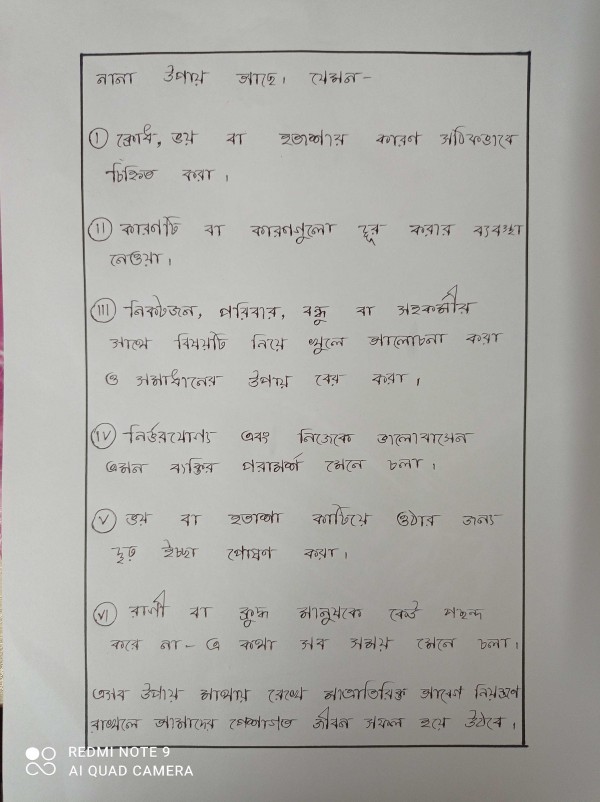 নানা উপায় আছে। যেমন-
① ক্রোধ, ভয় বা হতাশার কারণ সঠিকভাবে
চিহ্নিত করা।
II কারণটি বা কারণগুলো দূর করার ব্যবস্থা
নেওয়া।
III নিকটজন, পরিবার, বন্ধু বা সহকর্মীর
সাথে বিষয়টি নিয়ে খুলে আলোচনা করা
ও সমাধানের উপায় বের করা।
IV নির্ভরযোগ্য এবং নিজেকে ভালোবাসেন
এমন ব্যক্তির পরামর্শ মেনে চলা।
V ভয় বা হতাশা কাটিয়ে ওঠার জন্য
দৃঢ় ইচ্ছা পোষণ করা।
VI রাগী বা ক্রুদ্ধ মানুষকে কেউ পছন্দ
করে না- এ কথা সব সময় মেনে চলা।
এসব উপায় মাথায় রেখে মাত্রাতিরিক্ত আবেগ নিয়ন্ত্রণ
রাখলে আমাদের পেশাগত জীবন সফল হয়ে উঠবে।
REDMI NOTE 9
AI QUAD CAMERA